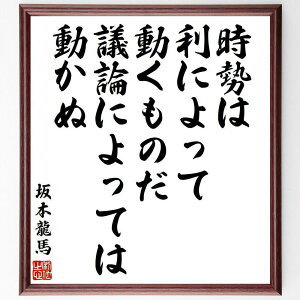 時勢は
利によって
動くものだ
議論によっては
動かぬ
坂本龍馬